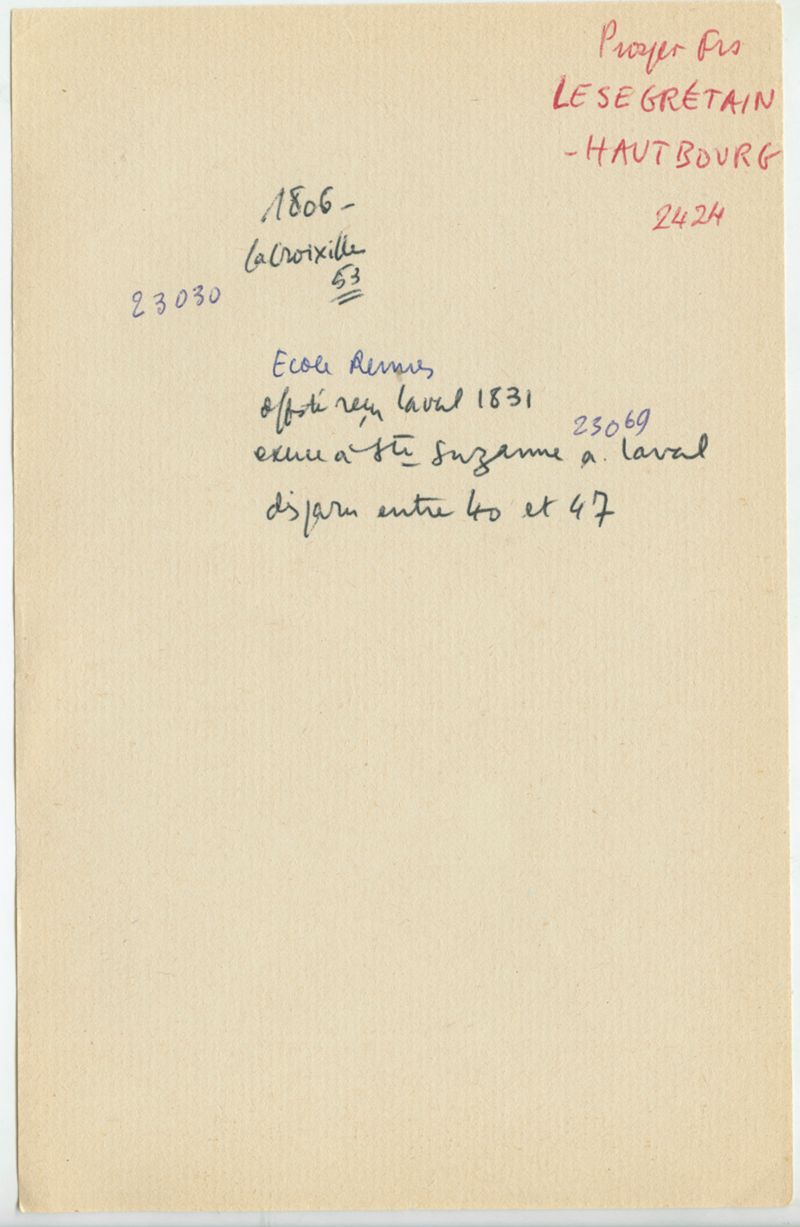 Prosper Frs
LESEGRÉTAIN
-HAUTBOURG
2424
1806-
La Croixille
53
23030
Ecole Rennes
off. santé reçu Laval 1831
23069
exerce à Ste Suzanne a. Laval
disparu entre 40 et 47